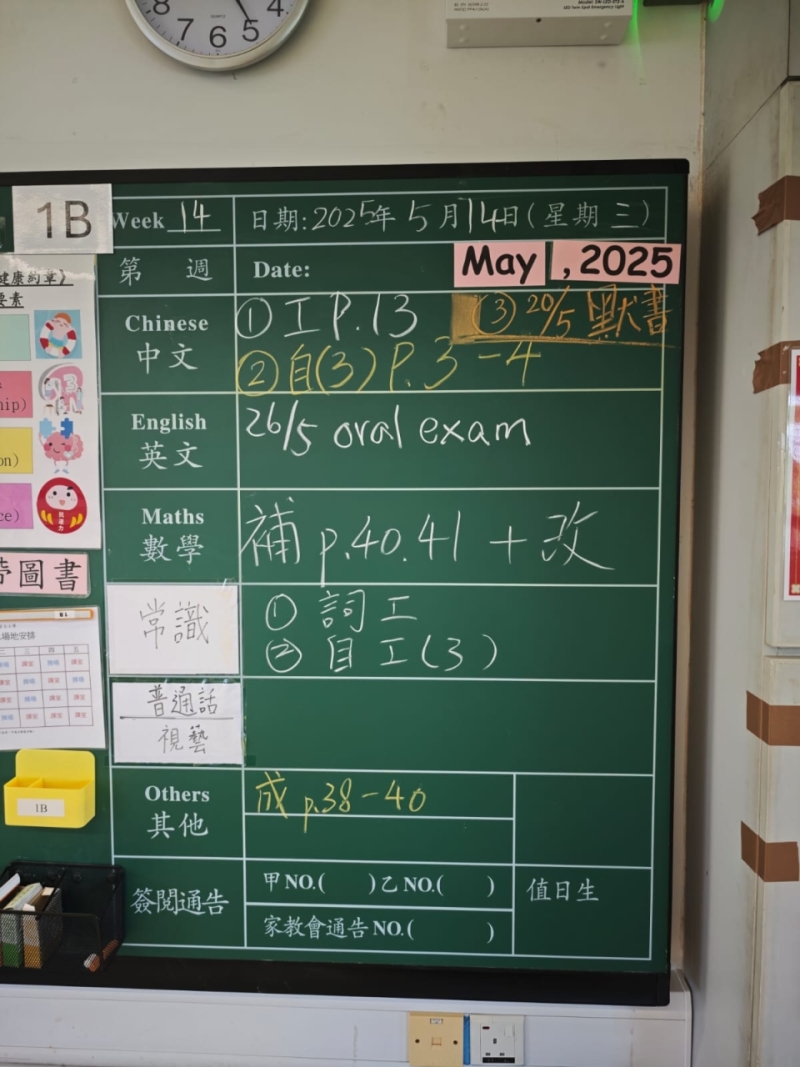 8 7 6 5 4
QUARTZ
1B
Week 14
日期:2025年5月14日(星期三)
第 週
Date:
May , 2025
健康約章》
要素
Chinese
中文
① 工 P.13
③ 20/5 默書
② 自(3) P.3-4
English
英文
26/5 oral exam
Maths
數學
補 p.40.41 + 改
常識
① 詞工
② 自工(3)
普通話
視藝
Others
其他
成 p.38-40
簽閱通告
甲 NO.( ) 乙 NO.( )
家教會通告 NO.( )
值日生
hip)
on)
ce)
圖書
場地安排
三 四 五
1B